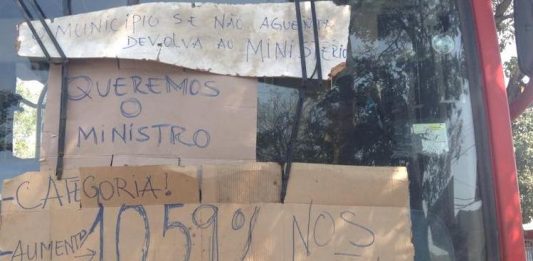 MUNICÍPIO SE NÃO AGUENTA
DEVOLVA AO MINISTÉRIO
QUEREMOS
O
MINISTRO
- CATEGORIA!
- AUMENTO → 1059% NOS